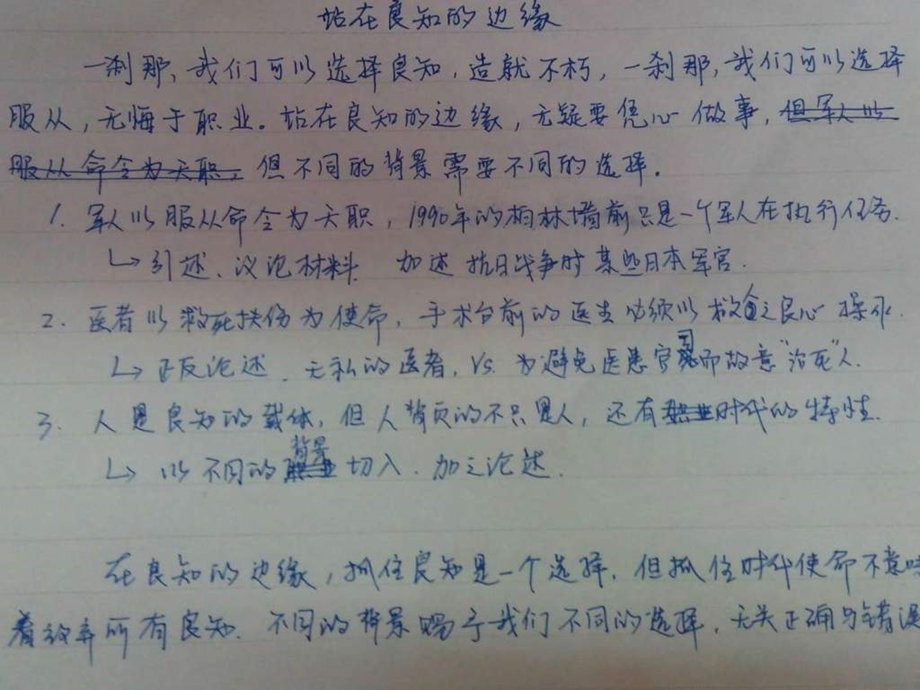 站在良知的边缘
一刹那，我们可以选择良知，造就不朽，一刹那，我们可以选择
服从，无悔于职业。站在良知的边缘，无疑要凭心做事，但军人以
服从命令为天职，但不同的背景需要不同的选择。
1. 军人以服从命令为天职，1990年的柏林墙前只是一个军人在执行任务
↳ 引述、议论材料 加述 抗日战争时某些日本军官.
2. 医者以救死扶伤为使命，手术台前的医生必须以救命之良心操示.
↳ 正反论述. 无私的医者, VS. 为避免医患官司而故意"治死"人.
3. 人是良知的载体，但人背负的不只是人，还有职业时代的特性.
↳ 以不同的职业背景切入. 加之论述.
在良知的边缘，抓住良知是一个选择. 但抓住时代使命不意味
着放弃所有良知. 不同的背景赐予我们不同的选择，无关正确与错误